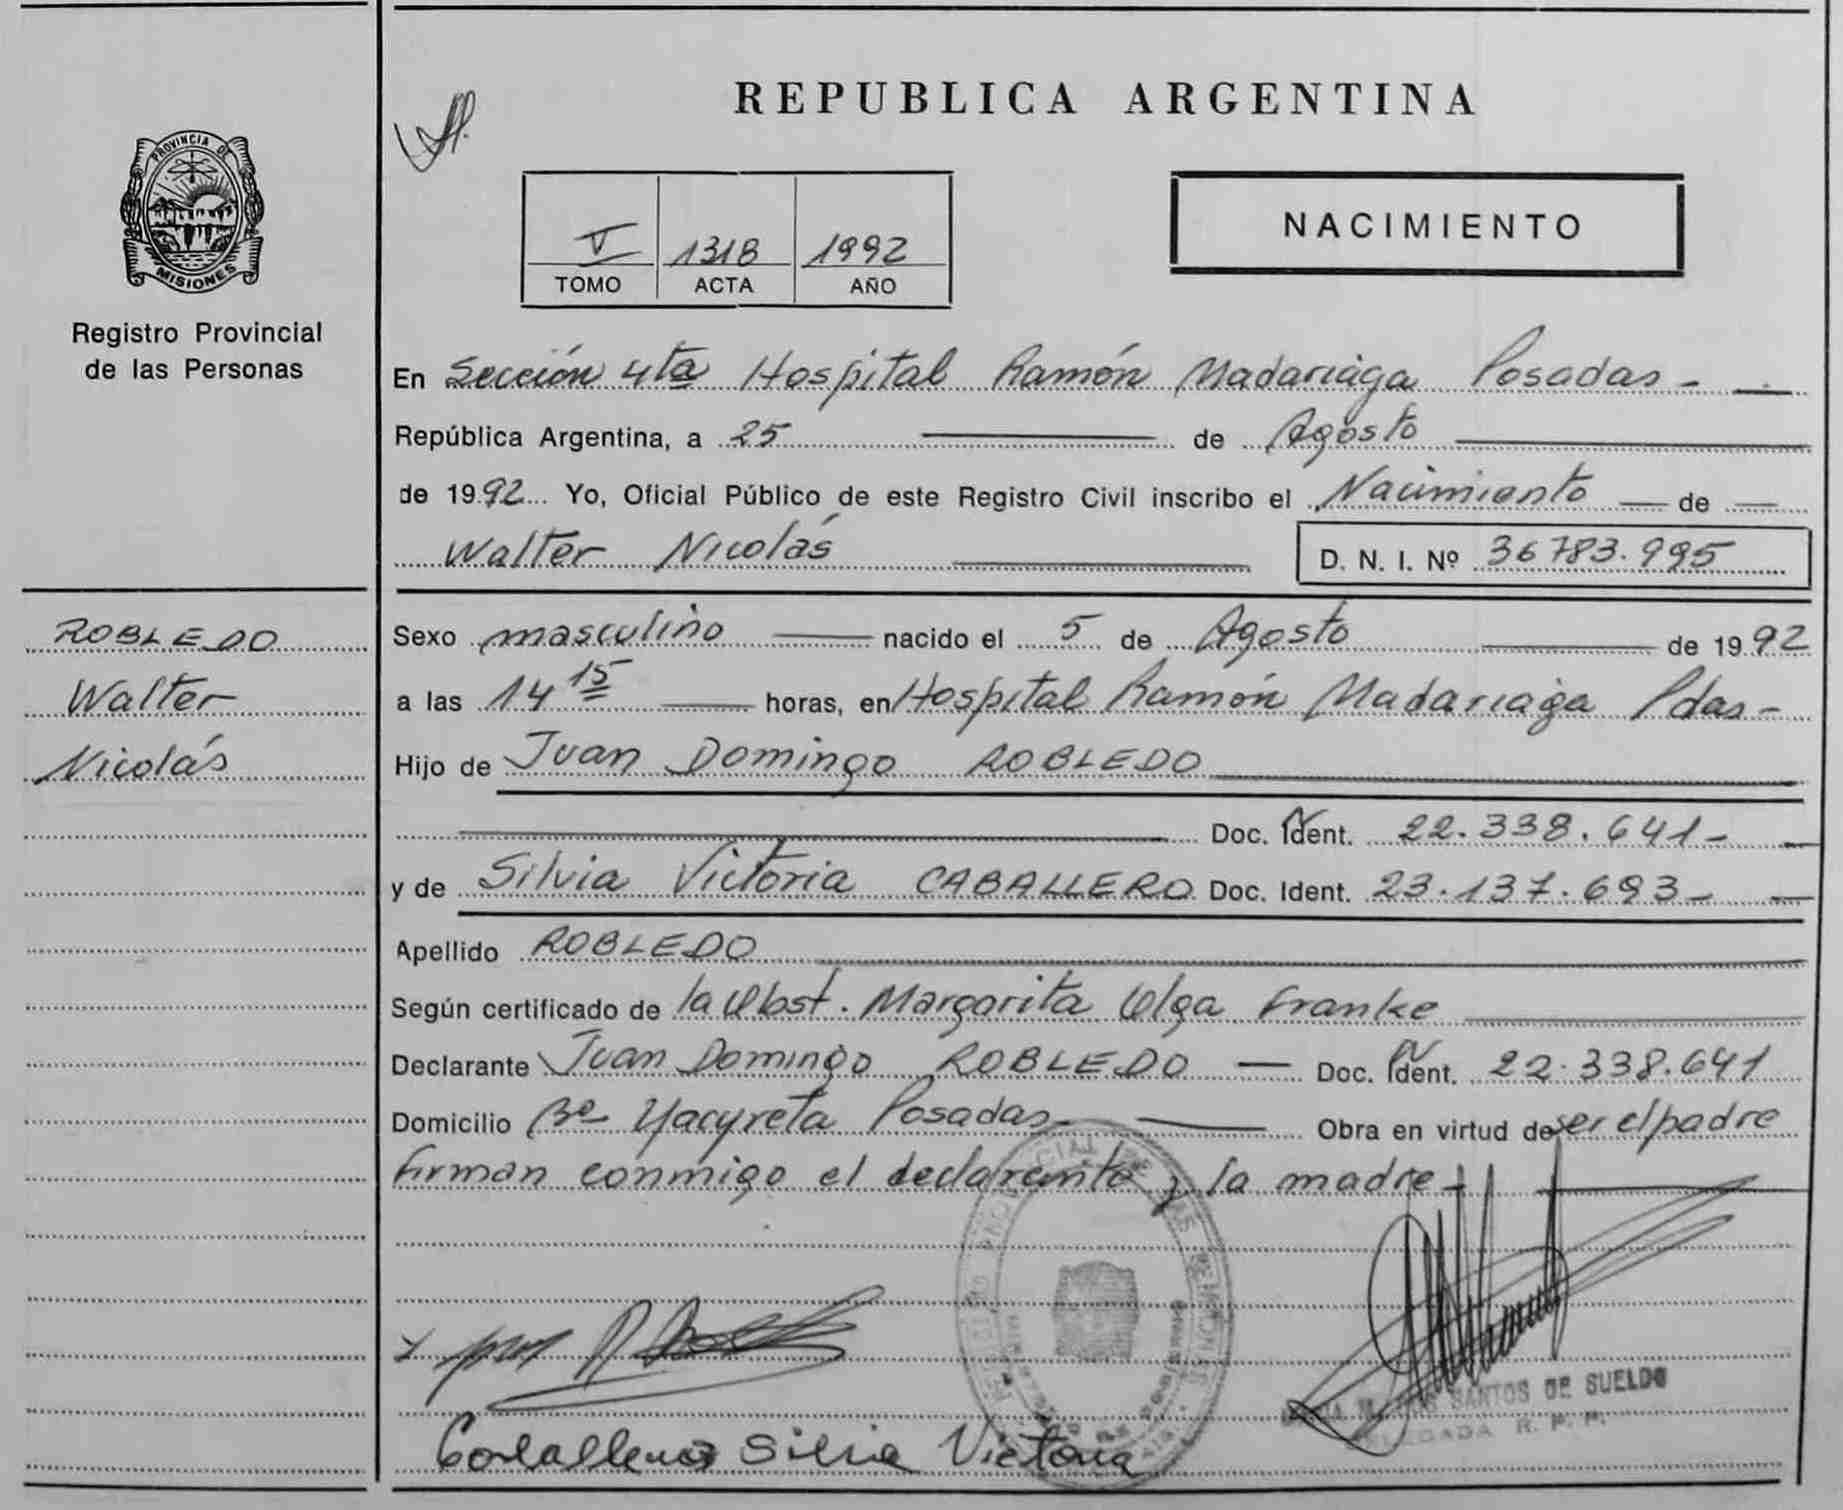 REPUBLICA ARGENTINA
PROVINCIA DE
MISIONES
Registro Provincial
de las Personas
V 1318 1992
TOMO ACTA AÑO
NACIMIENTO
En Sección 4ta Hospital Ramón Madariaga Posadas -
República Argentina, a 25 de Agosto
de 1992 Yo, Oficial Público de este Registro Civil inscribo el Nacimiento de
Walter Nicolás
D. N. I. Nº 36783.995
ROBLEDO
Walter
Nicolás
Sexo masculino nacido el 5 de Agosto de 1992
a las 14 15 horas, en Hospital Ramón Madariaga Pdas -
Hijo de Juan Domingo ROBLEDO
Doc. Ident. 22.338.641 -
y de Silvia Victoria CABALLERO Doc. Ident. 23.137.693 -
Apellido ROBLEDO
Según certificado de la Obst. Margarita Olga Franke
Declarante Juan Domingo ROBLEDO Doc. Ident. 22.338.641
Domicilio Bº Yacyreta Posadas Obra en virtud de ser el padre
firman conmigo el declarante y la madre -
SANTOS DE SUELDO
DELEGADA R. P. P.
Caballero Silvia Victoria